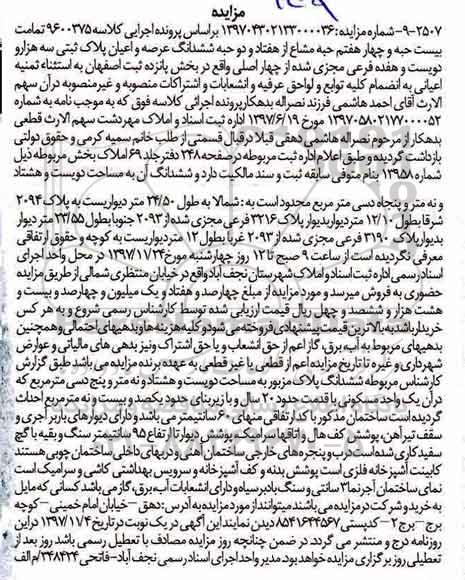 مزایده
۹-۲۵۰۷-شماره مزایده: ۱۳۹۷۰۴۳۰۲۱۳۳۰۰۰۰۳۶ براساس پرونده اجرایی کلاسه ۹۶۰۰۳۷۵ تمامت
بیست حبه و چهار هفتم حبه مشاع از هفتاد و دو حبه ششدانگ عرصه و اعیان پلاک ثبتی سه هزار و
دویست و هفده فرعی مجزی شده از چهار اصلی واقع در بخش پانزده ثبت اصفهان به استثناء ثمنیه
اعیانی به انضمام کلیه توابع و لواحق عرفیه و انشعابات و اشتراکات منصوبه و غیر منصوبه در آن سهم
الارث آقای احمد هاشمی فرزند نصراله بدهکار پرونده اجرائی کلاسه فوق که به موجب نامه به شماره
۱۳۹۷۰۵۸۰۲۱۷۷۰۰۰۰۵۲ مورخ ۱۳۹۷/۶/۱۹ اداره ثبت اسناد و املاک مهردشت سهم الارث قطعی
بدهکار از مرحوم نصراله هاشمی دهقی قبلا در قبال قسمتی از طلب خانم سمیه کرمی و حقوق دولتی
بازداشت گردیده و طبق اعلام اداره ثبت مربوطه در صفحه ۲۴۸ دفتر جلد ۶۹ املاک بخش مربوطه ذیل
شماره ۱۳۹۵۸ بنام متوفی سابقه ثبت و سند مالکیت دارد و ششدانگ آن به مساحت دویست و هشتاد
و نه متر و پنجاه دسی متر مربع محدود است به: شمالا به طول ۲۴/۵۰ متر دیواریست به پلاک ۲۰۹۴
شرقا بطول ۱۲/۱۰ متر دیوار بدیوار پلاک ۳۲۱۶ فرعی مجزی شده از ۲۰۹۳ جنوبا بطول ۲۳/۵۵ متر دیوار
بدیوار پلاک ۳۱۹۰ فرعی مجزی شده از ۲۰۹۳ غربا بطول ۱۲ متر دیواریست به کوچه و حقوق ارتفاقی
معرفی نگردیده است از ساعت ۹ صبح تا ۱۲ روز چهارشنبه مورخ ۱۳۹۷/۱۱/۲۴ در محل واحد اجرای
اسناد رسمی اداره ثبت اسناد و املاک شهرستان نجف آباد واقع در خیابان منتظری شمالی از طریق مزایده
حضوری به فروش میرسد و مورد مزایده از مبلغ چهارصد و هفتاد و یک میلیون و چهارصد و بیست و
هشت هزار و ششصد و چهل ریال قیمت ارزیابی شده توسط کارشناس رسمی شروع و به هر کس
خریدار باشد به بالاترین قیمت پیشنهادی فروخته می شود و کلیه هزینه ها و بدهیهای احتمالی و همچنین
بدهیهای مربوط به آب، برق، گاز اعم از حق انشعاب و یا حق اشتراک و نیز بدهی های مالیاتی و عوارض
شهرداری و غیره تا تاریخ مزایده اعم از قطعی یا غیر قطعی به عهده برنده مزایده می باشد طبق گزارش
کارشناس مربوطه ششدانگ پلاک مزبور به مساحت دویست و هشتاد و نه متر و پنج دسی متر مربع که
در آن یک واحد مسکونی با قیمت حدود ۲۰ سال و با زیربنای حدود یکصد و بیست و نه متر مربع احداث
گردیده است ساختمان مذکور با کد ارتفاقی منهای ۶۰ سانتیمتر می باشد و دارای دیوارهای باربر آجری و
سقف تیرآهن، پوشش کف هال و اتاقها سرامیک و پوشش دیوار تا ارتفاع ۱۵ سانتیمتر سنگ و بقیه با گچ
سفید کاری شده است درب و پنجره های خارجی ساختمان آهنی و دربهای داخلی ساختمان چوبی هستند
کابینت آشپزخانه فلزی است پوشش بدنه و کف آشپزخانه و سرویس بهداشتی کاشی و سرامیک است
نمای ساختمان آجرنما ۳ سانتی و سنگ بادبر سیاه و دارای انشعابات آب، برق، گاز می باشد کسانی که مایل
به خرید و شرکت در مزایده می باشند میتوانند از مورد مزایده به آدرس: دهق – خیابان امام خمینی – کوچه
برج – برج ۲ – کدپستی ۸۵۴۱۶۴۴۵۶۷ دیدن نمایند این آگهی در یک نوبت در تاریخ ۱۳۹۷/۱۱/۴ در این
روزنامه درج و منتشر می گردد. در ضمن چنانچه روز مزایده مصادف با تعطیل رسمی باشد روز بعد از
تعطیلی روز برگزاری مزایده خواهد بود. مدیر واحد اجرای اسناد رسمی نجف آباد-فاتحی ۳۴۸۴۳۴/م الف